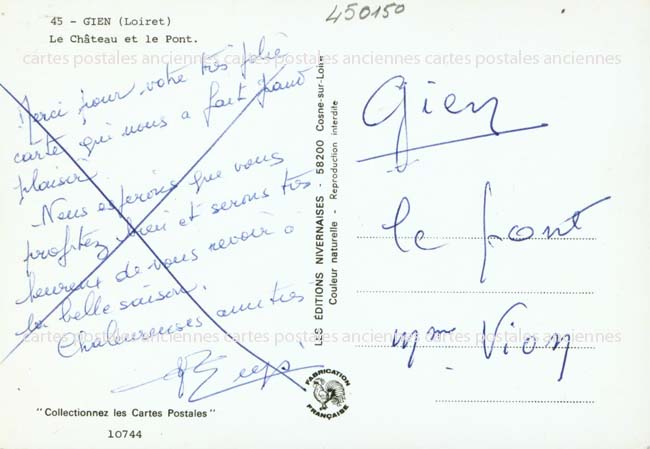 45 - GIEN (Loiret)
Le Château et le Pont.
450150
cartes postales anciennes cartes postales anciennes cartes postales anciennes
Merci pour votre très jolie
carte qui nous a fait grand
plaisir.
Nous espérons que vous
profitez bien et serons très
heureux de vous revoir à
la belle saison.
Chaleureuses amitiés
LES EDITIONS NIVERNAISES - 58200 Cosne-sur-Loire
Couleur naturelle - Reproduction interdite
Gien
le pont
mme Vion
cartes postales anciennes cartes postales anciennes cartes postales anciennes
FABRICATION
FRANÇAISE
"Collectionnez les Cartes Postales"
10744